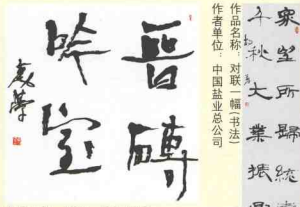 晋砖
吟室
作品名称：对联一幅(书法)
作者单位：中国盐业总公司
众望所归统
千秋大业振